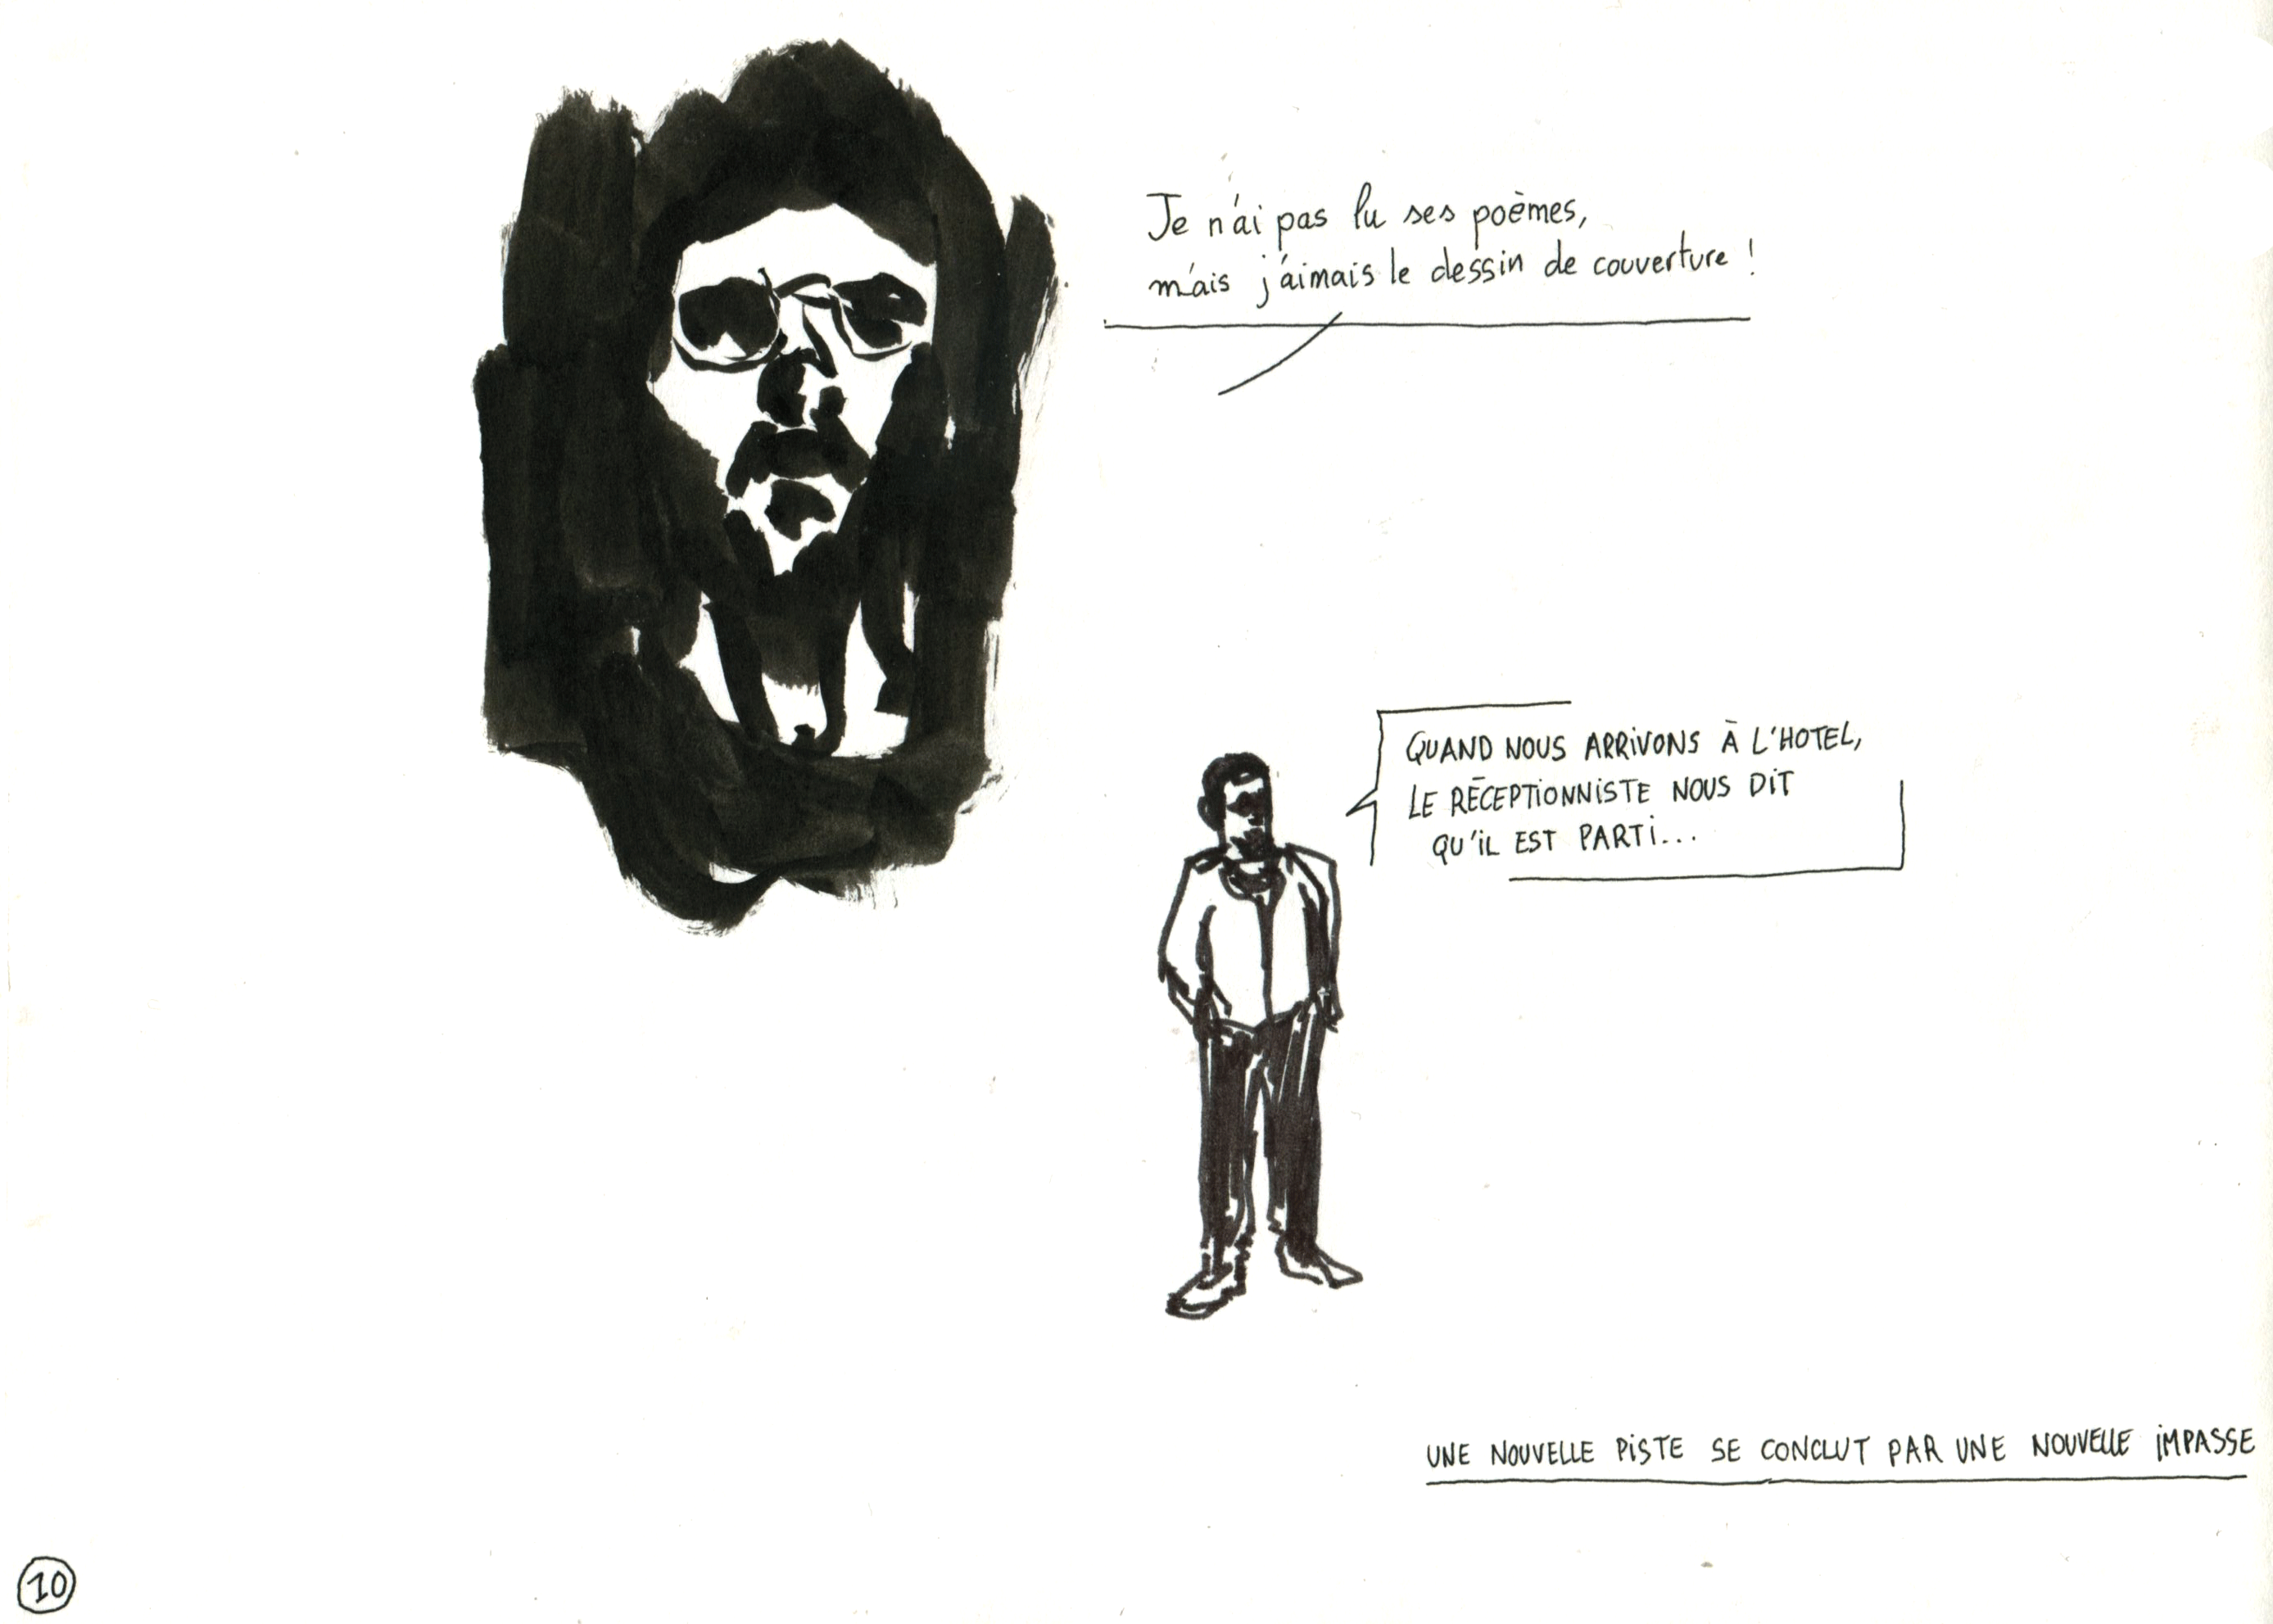 Je n'ai pas lu ses poèmes,
mais j'aimais le dessin de couverture !
QUAND NOUS ARRIVONS À L'HOTEL,
LE RÉCEPTIONNISTE NOUS DIT
QU'IL EST PARTI...
UNE NOUVELLE PISTE SE CONCLUT PAR UNE NOUVELLE IMPASSE
10